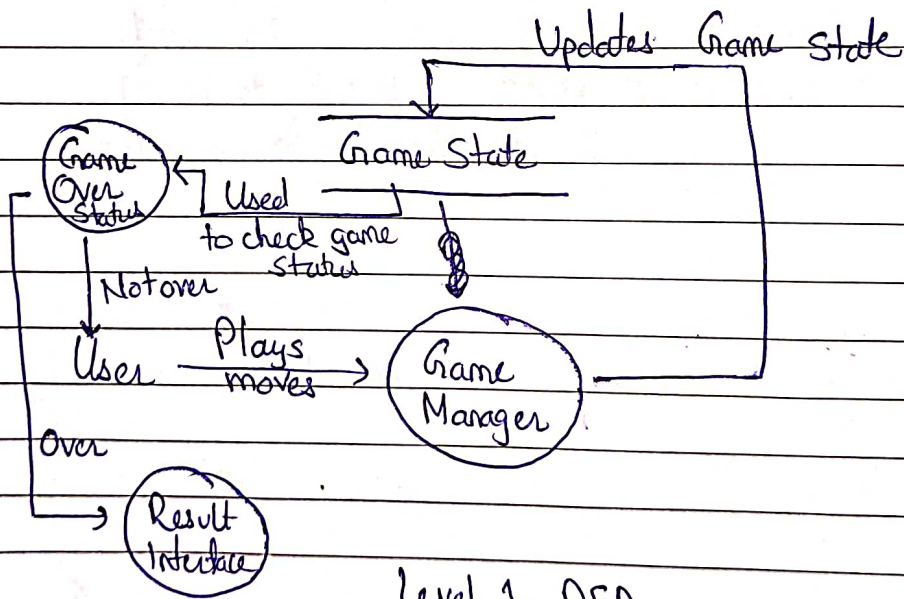 Updates Game State
Game State
Game
Over
Status
Used
to check game
status
Not over
User
Plays
moves
Game
Manager
Over
Result
Interface
Level 1